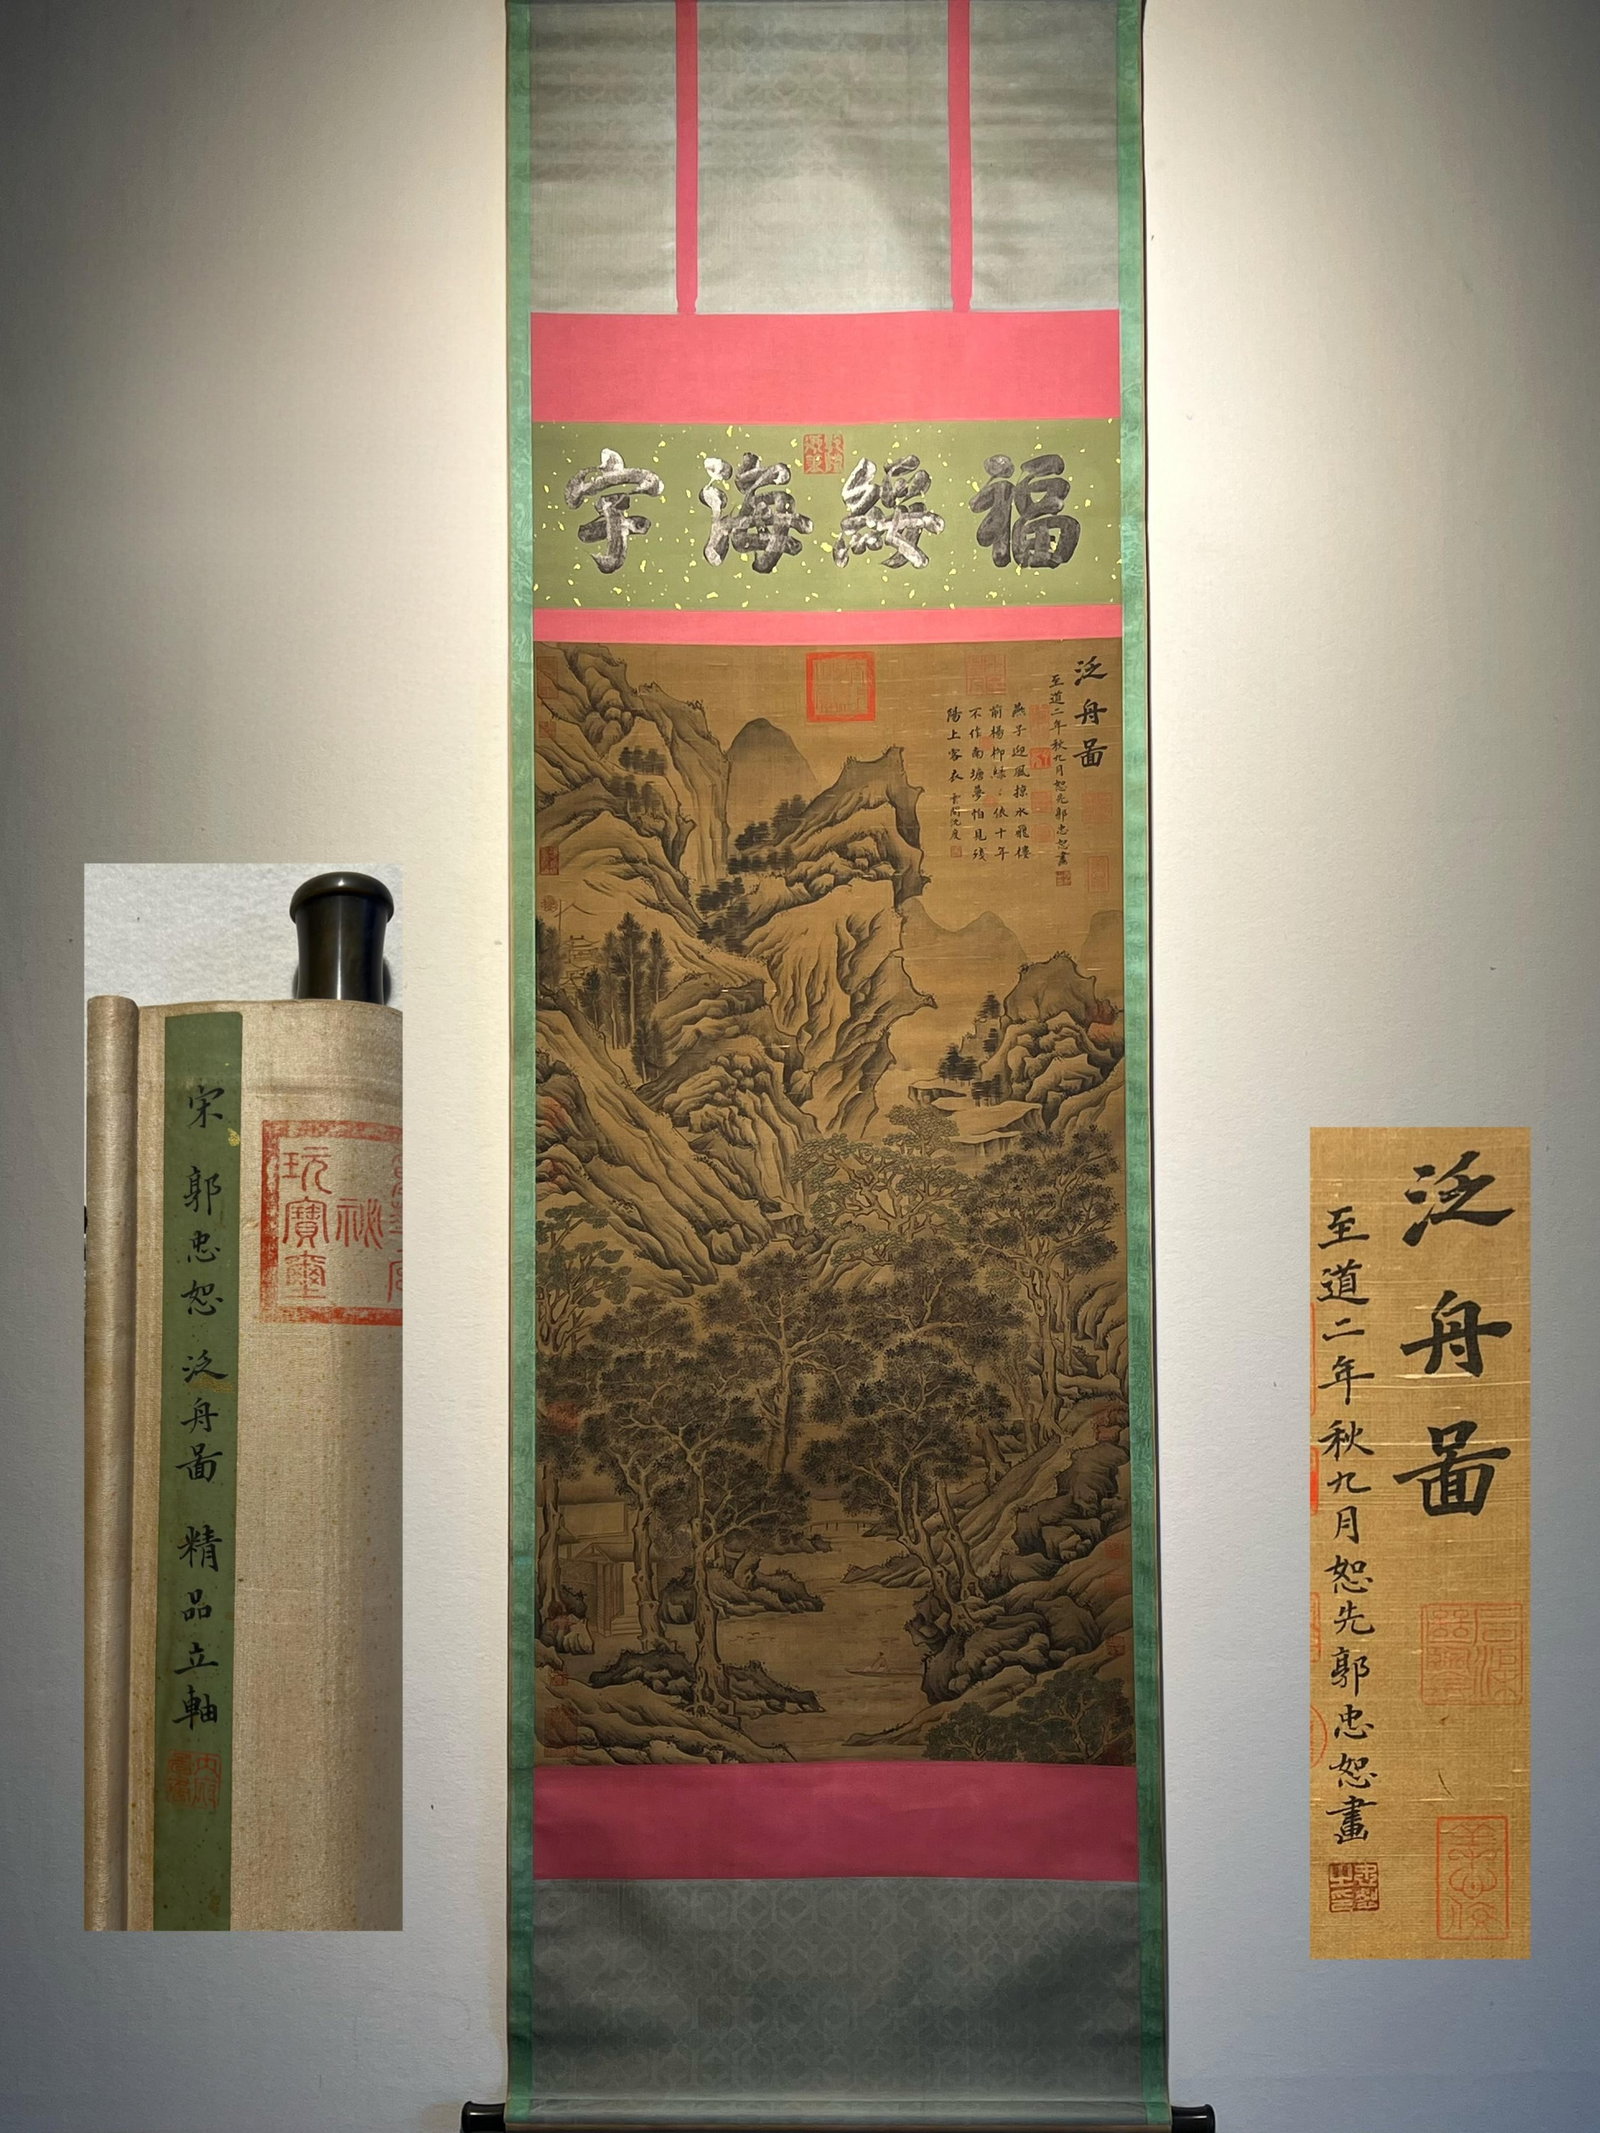 福綏海宇
泛舟圖
至道二年秋九月恕先郭忠恕畫
燕子迎風掠水飛樓
前楊柳綠：依十年
不作南塘夢怕見殘
陽上客衣 雲間沈度
宋 郭忠恕 泛舟圖 精品立軸
內府圖書
玩寶璽
秘
泛舟圖
至道二年秋九月恕先郭忠恕畫